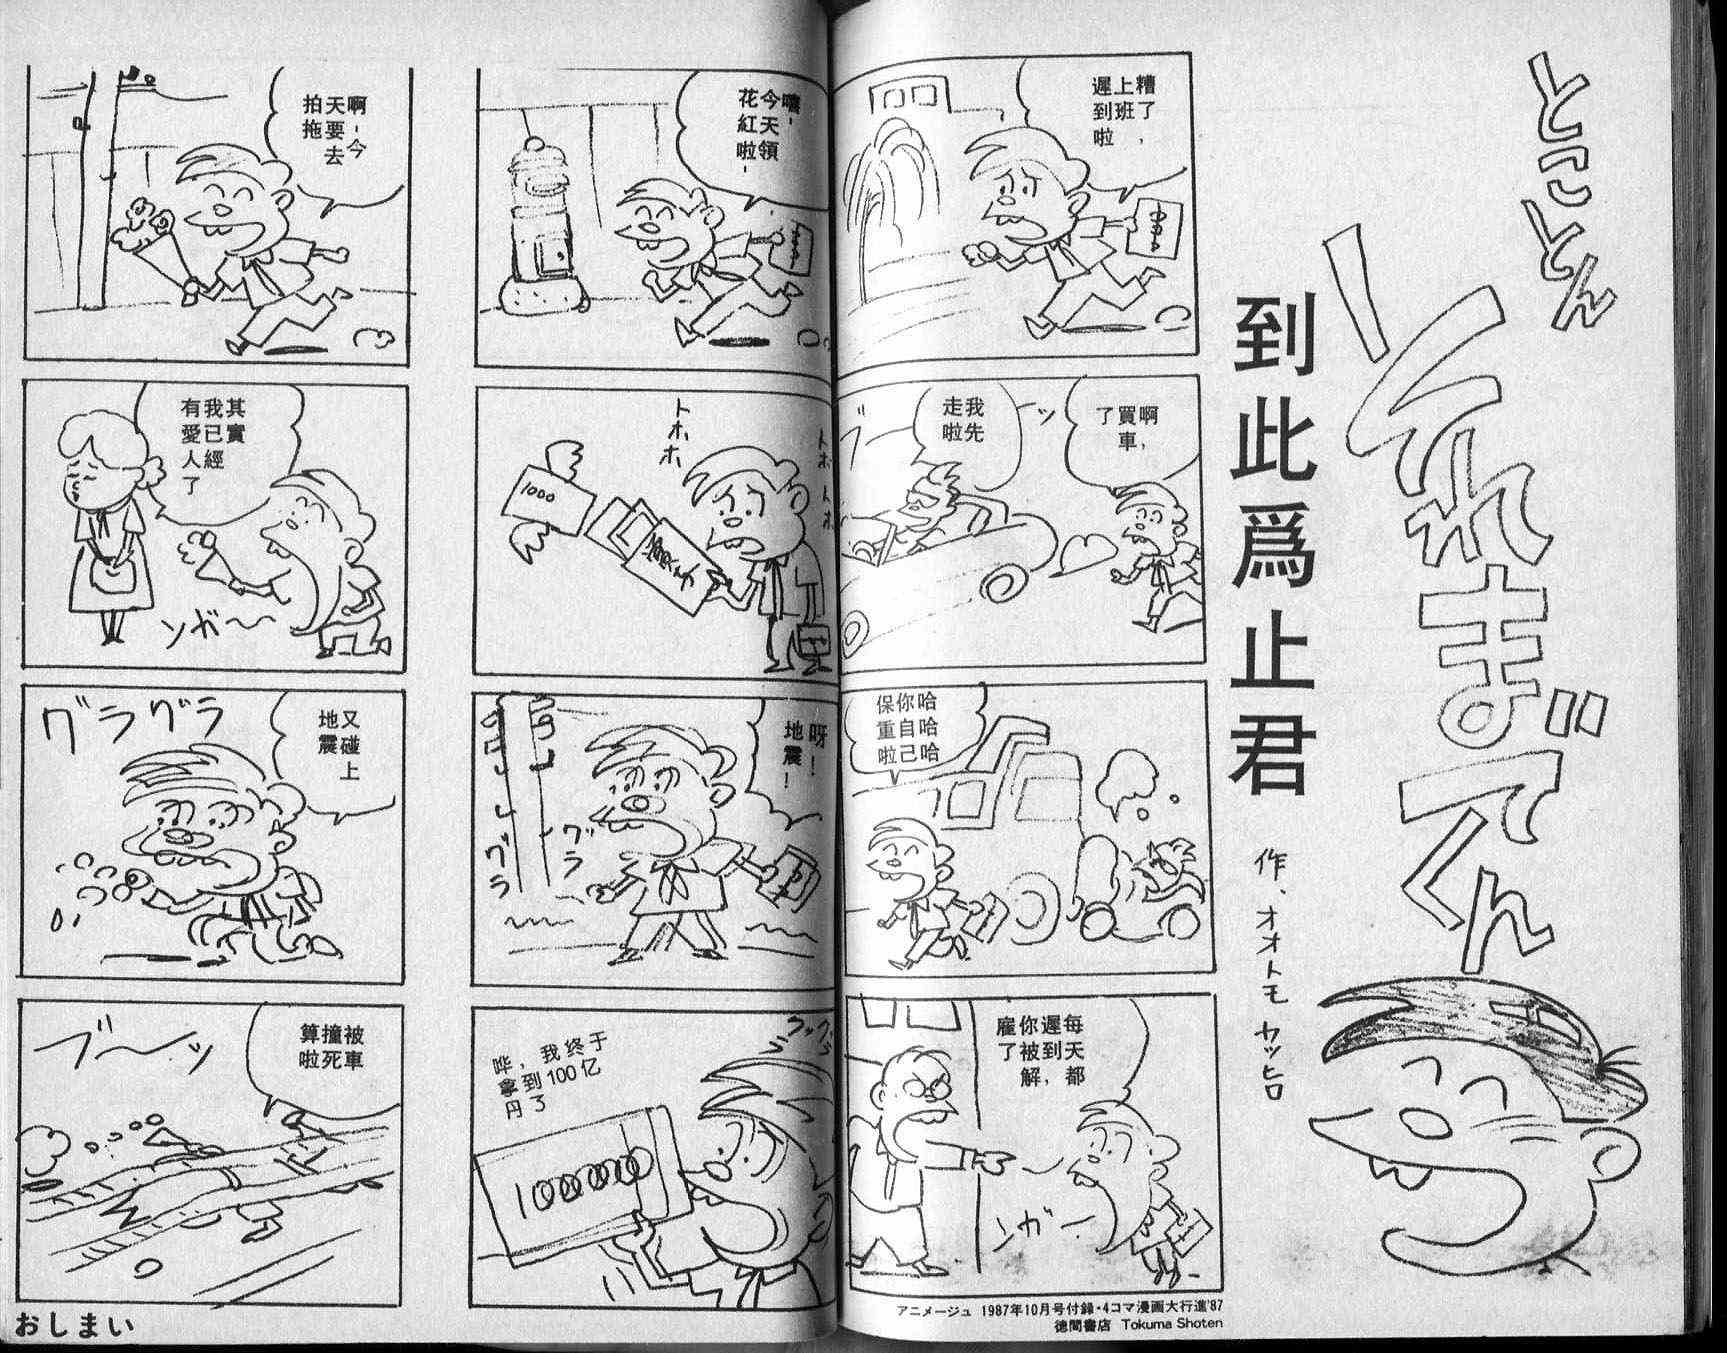 とことん
それまでくん
到此爲止君
作、オオトモカツヒロ
糟了，
上班
遲到啦
啊，
買車
了
ッ
我先
走啦
ブ
哈哈哈
你自己
保重啦
每天都
遲到，
你被解
雇了
ンガー
アニメージュ 1987年10月号付録・4コマ漫画大行進'87
徳間書店 Tokuma Shoten
嘻，
今天領
花紅啦，
トホホ
トホホ
1000
呀！
地震！
グッ
ラ
哗，我终于
拿到100亿
円了
啊，今
天要去
拍拖
其實
我已經
有愛人了
ンガ〜
又碰上
地震
グラグラ
被車
撞死
算啦
ブ〜ッ
おしまい